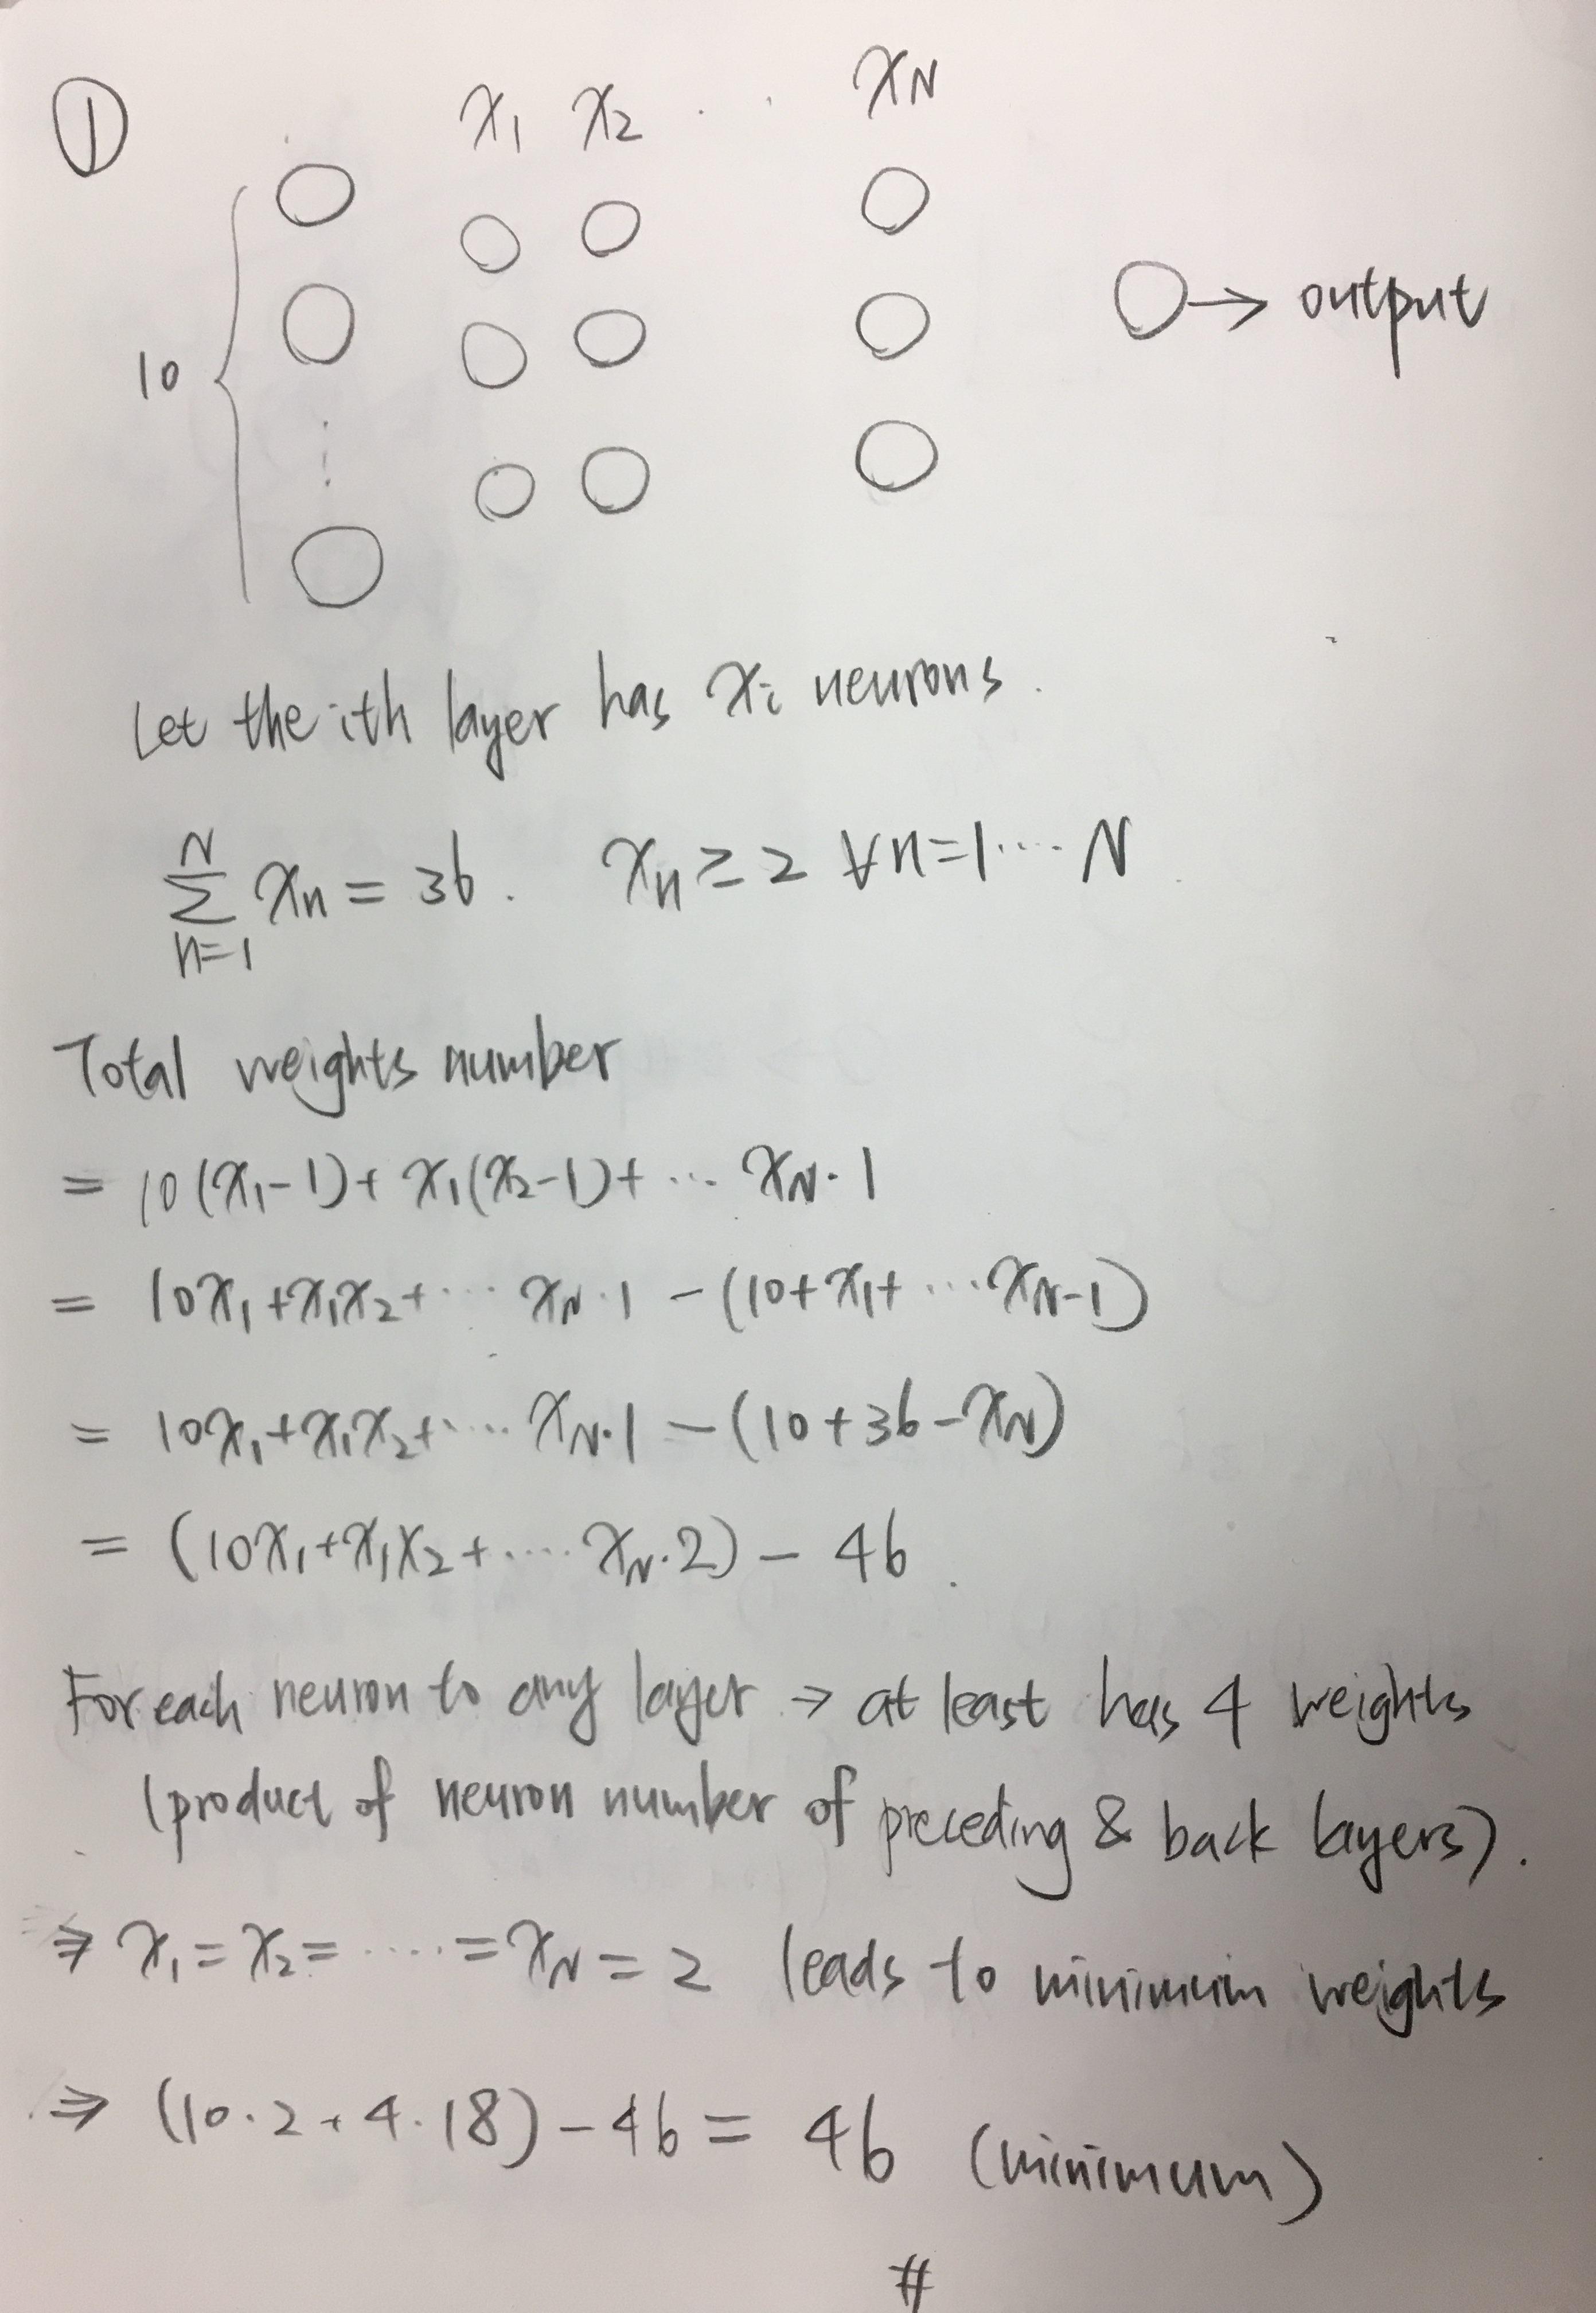 ①
x₁ x₂ . . x_N
10
→ output
Let the ith layer has xᵢ neurons.
N
Σ xₙ = 36. xₙ ≥ 2 ∀n=1···· N
n=1
Total weights number
= 10(x₁-1)+ x₁(x₂-1)+ ··· x_N · 1
= 10x₁+x₁x₂+···· x_N · 1 -(10+x₁+ ···x_{N-1})
= 10x₁+x₁x₂+···· x_N·1 -(10+36-x_N)
= (10x₁+x₁x₂+···· x_N·2) - 46.
For each neuron to any layer → at least has 4 weights
(product of neuron number of preceding & back layers).
⇒ x₁=x₂= ···· =x_N = 2 leads to minimum weights
⇒ (10·2+4·18)-46 = 46 (minimum)
#